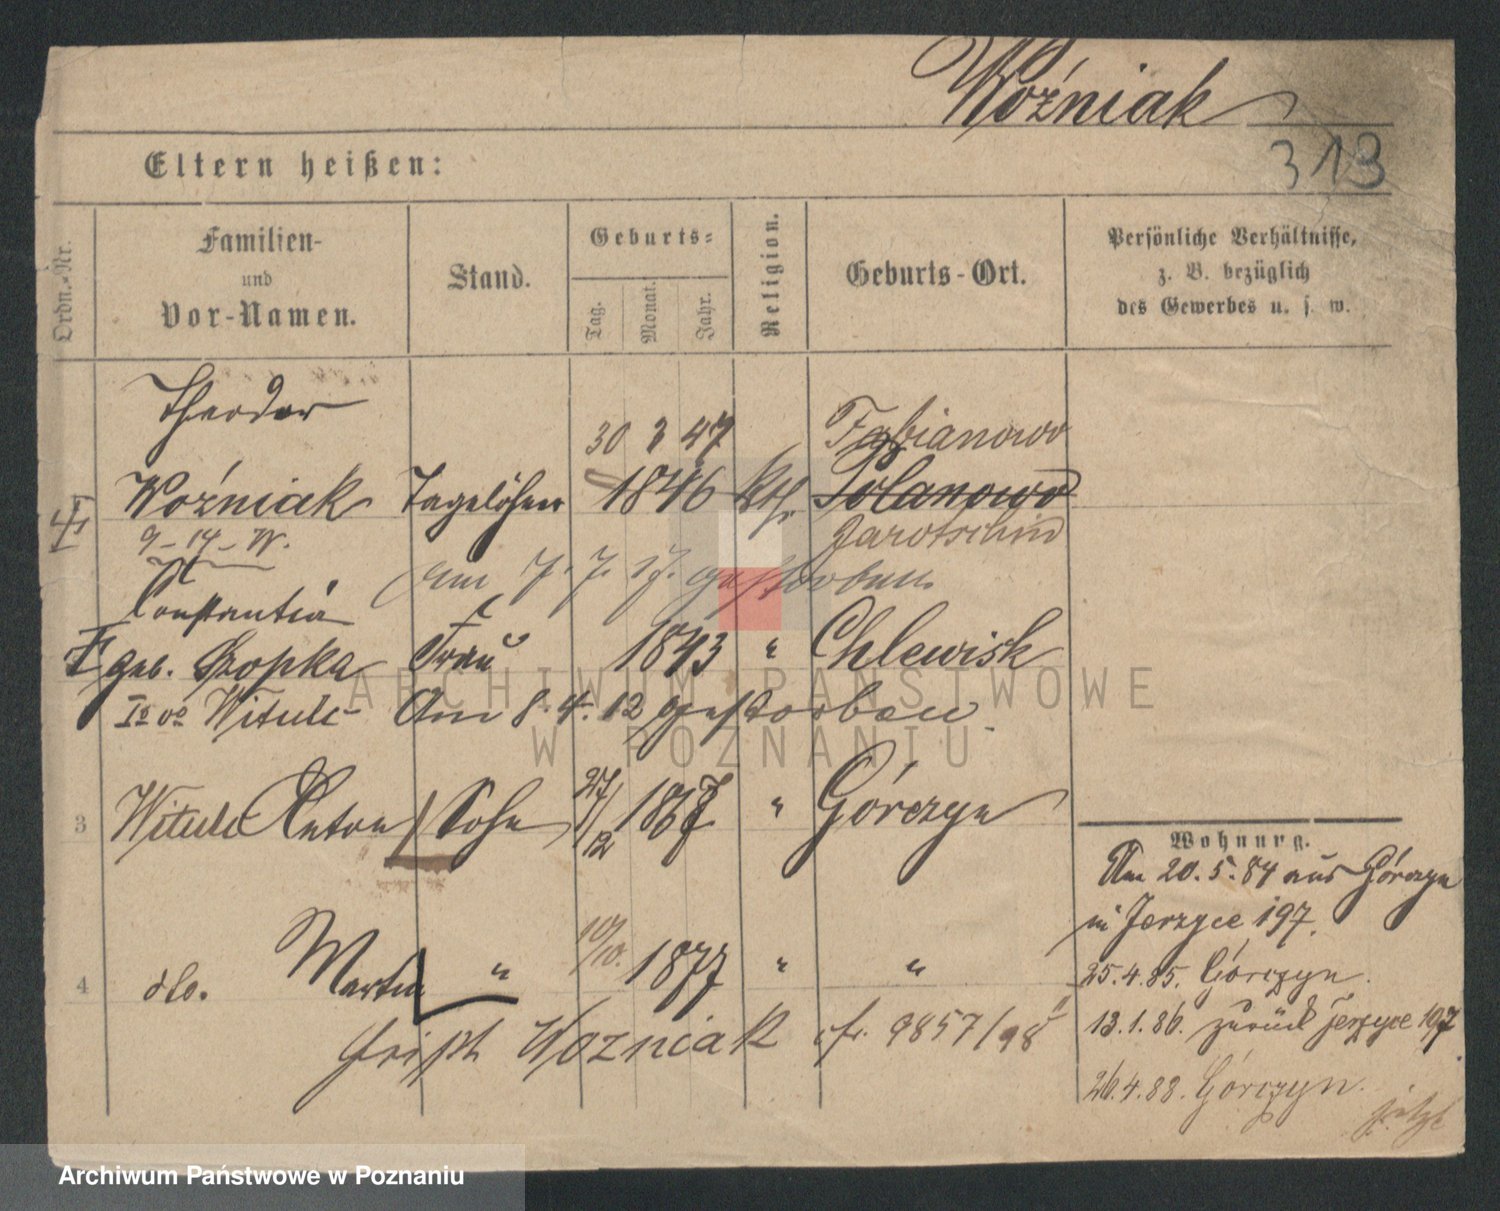 Woźniak
313
Eltern heißen:
Ordn.-Nr.
Familien-
und
Vor-Namen.
Stand.
Geburts-
Tag.
Monat.
Jahr.
Religion.
Geburts-Ort.
Persönliche Verhältnisse,
z. B. bezüglich
des Gewerbes u. s. w.
Theodor
30 3 47 Fabianowo
Woźniak Tagelöhner 1846 kth. Solanowo
9-14-W. Jarotschin
am 7. 7. 17. gestorben
Constantia
geb. Szopka Frau 1843 " Chlewisk
Io vo Witule Am 8. 4. 12 gestorben.
3 Witule Anton Sohn 27/12 1867 " Górczyn
Wohnung.
Am 20.5.84 aus Górczyn
in Jerzyce 197.
4 dto. Martin " 10/10. 1877 " "
25.4.85. Górczyn.
13.1.86. zurück Jerzyce 197.
Woźniak cfr. 9857/98
26.4.88. Górczyn.
jetzt
ARCHIWUM PAŃSTWOWE
W POZNANIU
Archiwum Państwowe w Poznaniu